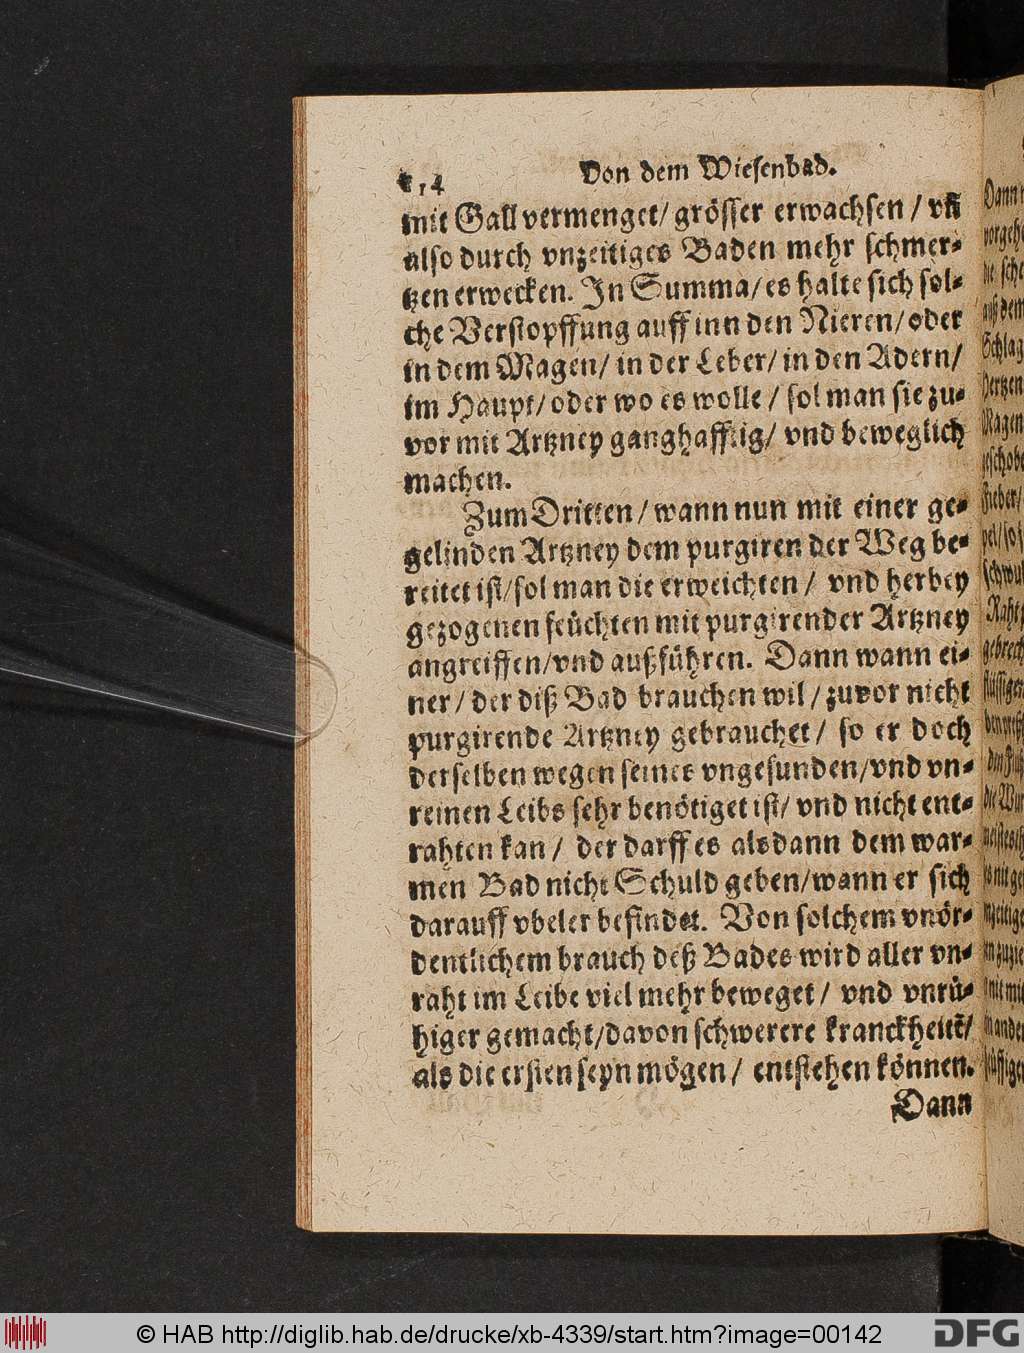 114 Von dem Wiesenbad.
mit Gall vermenget/ grösser erwachsen / vñ
also durch vnzeitiges Baden mehr schmer-
tzen erwecken. In Summa/ es halte sich sol-
che Verstopffung auff inn den Nieren/ oder
in dem Magen/ in der Leber/ in den Adern/
im Haupt/ oder wo es wolle / sol man sie zu-
vor mit Artzney ganghafftig/ vnd beweglich
machen.
Zum Dritten / wann nun mit einer ge-
gelinden Artzney dem purgiren der Weg be-
reitet ist/ sol man die erweichten / vnd herbey
gezogenen feüchten mit purgirender Artzney
angreiffen/ vnd außführen. Dann wann ei-
ner / der diß Bad brauchen wil / zuvor nicht
purgirende Artzney gebrauchet / so er doch
derselben wegen seines vngesunden/ vnd vn-
reinen Leibs sehr benötiget ist/ vnd nicht ent-
rahten kan / der darff es alsdann dem war-
men Bad nicht Schuld geben/ wann er sich
darauff vbeler befindet. Von solchem vnör-
dentlichem brauch deß Bades wird aller vn-
raht im Leibe viel mehr beweget / vnd vnrü-
higer gemacht/ davon schwerere kranckheitẽ/
als die ersten seyn mögen / entstehen können.
Dann
© HAB http://diglib.hab.de/drucke/xb-4339/start.htm?image=00142
DFG